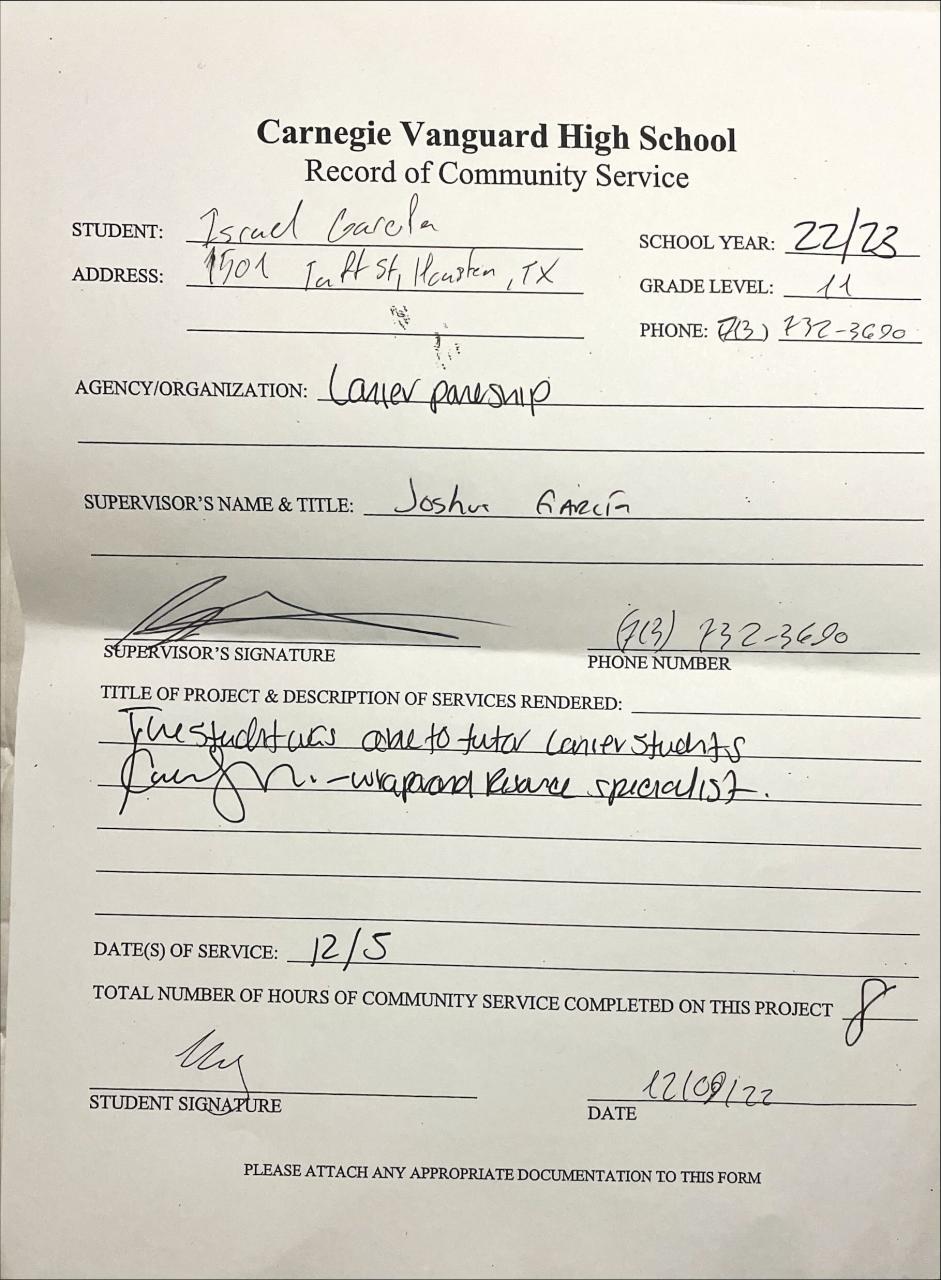 Carnegie Vanguard High School
Record of Community Service
STUDENT: Israel Garcia
SCHOOL YEAR: 22/23
ADDRESS: 1501 Taft St, Houston, TX
GRADE LEVEL: 11
PHONE: (713) 732-3690
AGENCY/ORGANIZATION: Lanier
SUPERVISOR'S NAME & TITLE: Joshua García
SUPERVISOR'S SIGNATURE
(713) 732-3690
PHONE NUMBER
TITLE OF PROJECT & DESCRIPTION OF SERVICES RENDERED:
The student was able to tutor Lanier students
-wraparound Resource specialist.
DATE(S) OF SERVICE: 12/5
TOTAL NUMBER OF HOURS OF COMMUNITY SERVICE COMPLETED ON THIS PROJECT 8
STUDENT SIGNATURE
12/09/22
DATE
PLEASE ATTACH ANY APPROPRIATE DOCUMENTATION TO THIS FORM